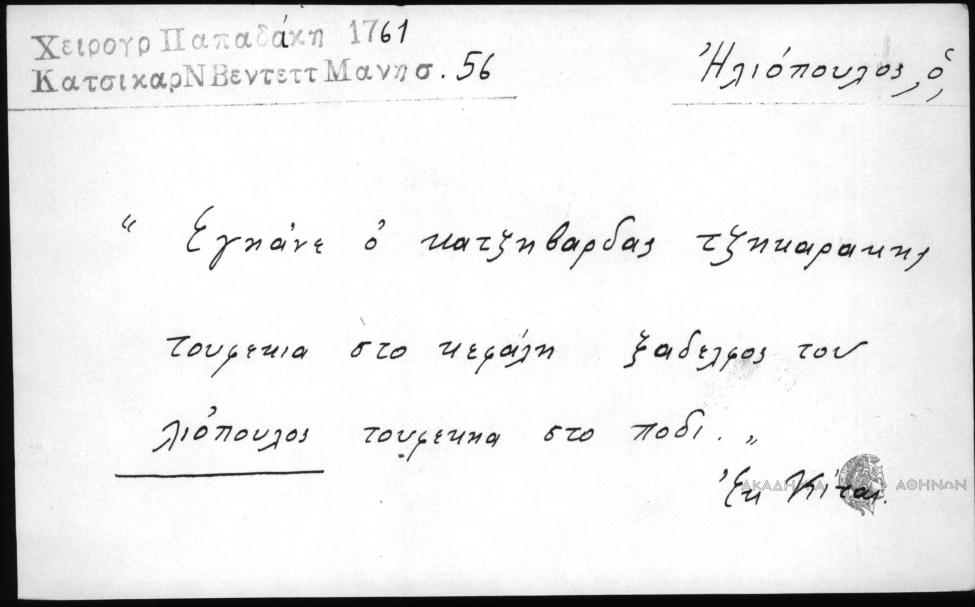 Χειρογρ Παπαδάκη 1761
ΚατσικαρΝ Βεντεττ Μανη σ. 56
Ἡλιόπουλος, ὁ,
“ Εγηάνε ὁ κατζηβαρδας τζηκαρακης
τουφεκια στο κεφάλη ξαδελφος του
λιόπουλος τουφεκηα στο ποδι. „
Ἐκ Κίτας.
ΑΚΑΔΗΜΙΑ ΑΘΗΝΩΝ